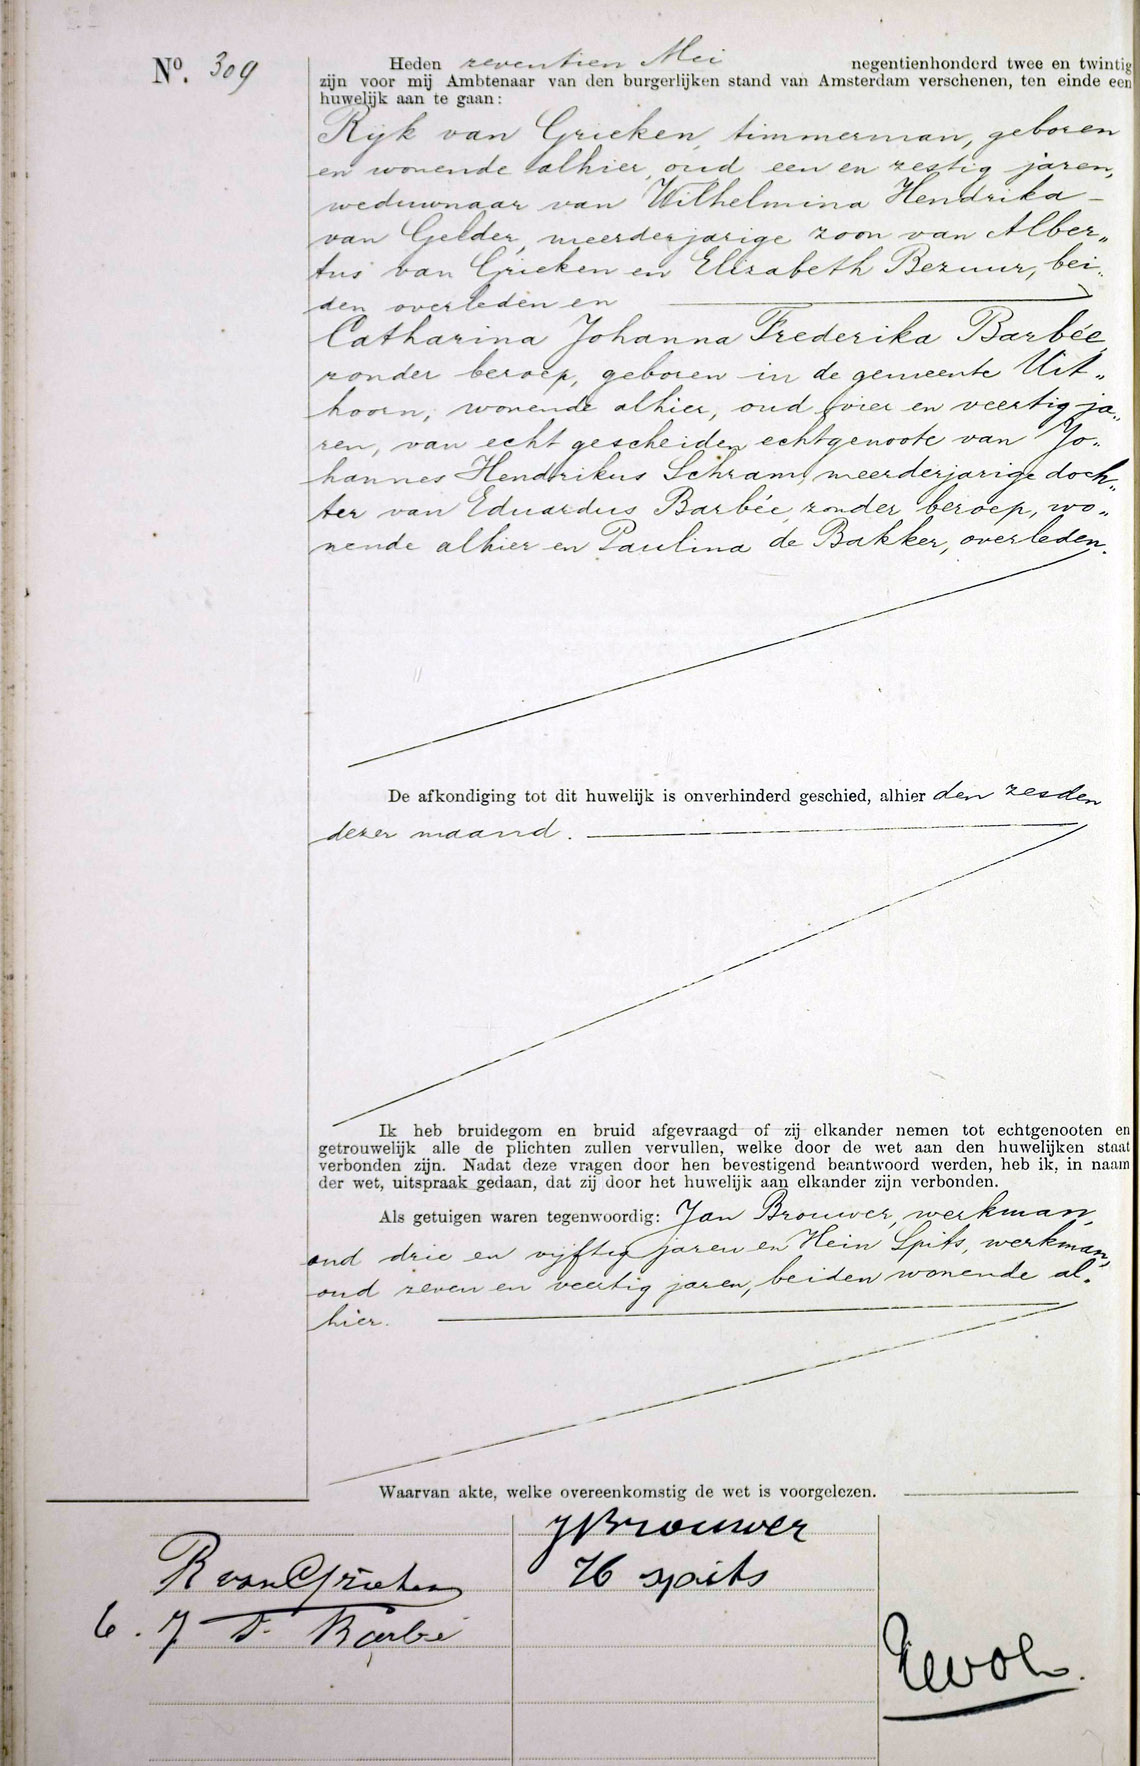 No. 309
Heden zeventien Mei negentienhonderd twee en twintig
zijn voor mij Ambtenaar van den burgerlijken stand van Amsterdam verschenen, ten einde een
huwelijk aan te gaan:
Rijk van Grieken, timmerman, geboren
en wonende alhier, oud een en zestig jaren,
weduwnaar van Wilhelmina Hendrika –
van Gelder, meerderjarige zoon van Alber„
tus van Grieken en Elizabeth Bezuur, bei„
den overleden en
Catharina Johanna Frederika Barbée,
zonder beroep, geboren in de gemeente Uit„
hoorn, wonende alhier, oud vier en veertig ja„
ren, van echt gescheiden echtgenoote van Jo„
hannes Hendrikus Schram, meerderjarige doch„
ter van Eduardus Barbée, zonder beroep, wo„
nende alhier en Paulina de Bakker, overleden.
De afkondiging tot dit huwelijk is onverhinderd geschied, alhier den zesden
dezer maand.
Ik heb bruidegom en bruid afgevraagd of zij elkander nemen tot echtgenooten en
getrouwelijk alle de plichten zullen vervullen, welke door de wet aan den huwelijken staat
verbonden zijn. Nadat deze vragen door hen bevestigend beantwoord werden, heb ik, in naam
der wet, uitspraak gedaan, dat zij door het huwelijk aan elkander zijn verbonden.
Als getuigen waren tegenwoordig: Jan Brouwer, werkman,
oud drie en vijftig jaren en Hein Spits, werkman,
oud zeven en veertig jaren, beiden wonende al„
hier.
Waarvan akte, welke overeenkomstig de wet is voorgelezen.
J Brouwer
R van Grieken
H Spits
C. J Barbé